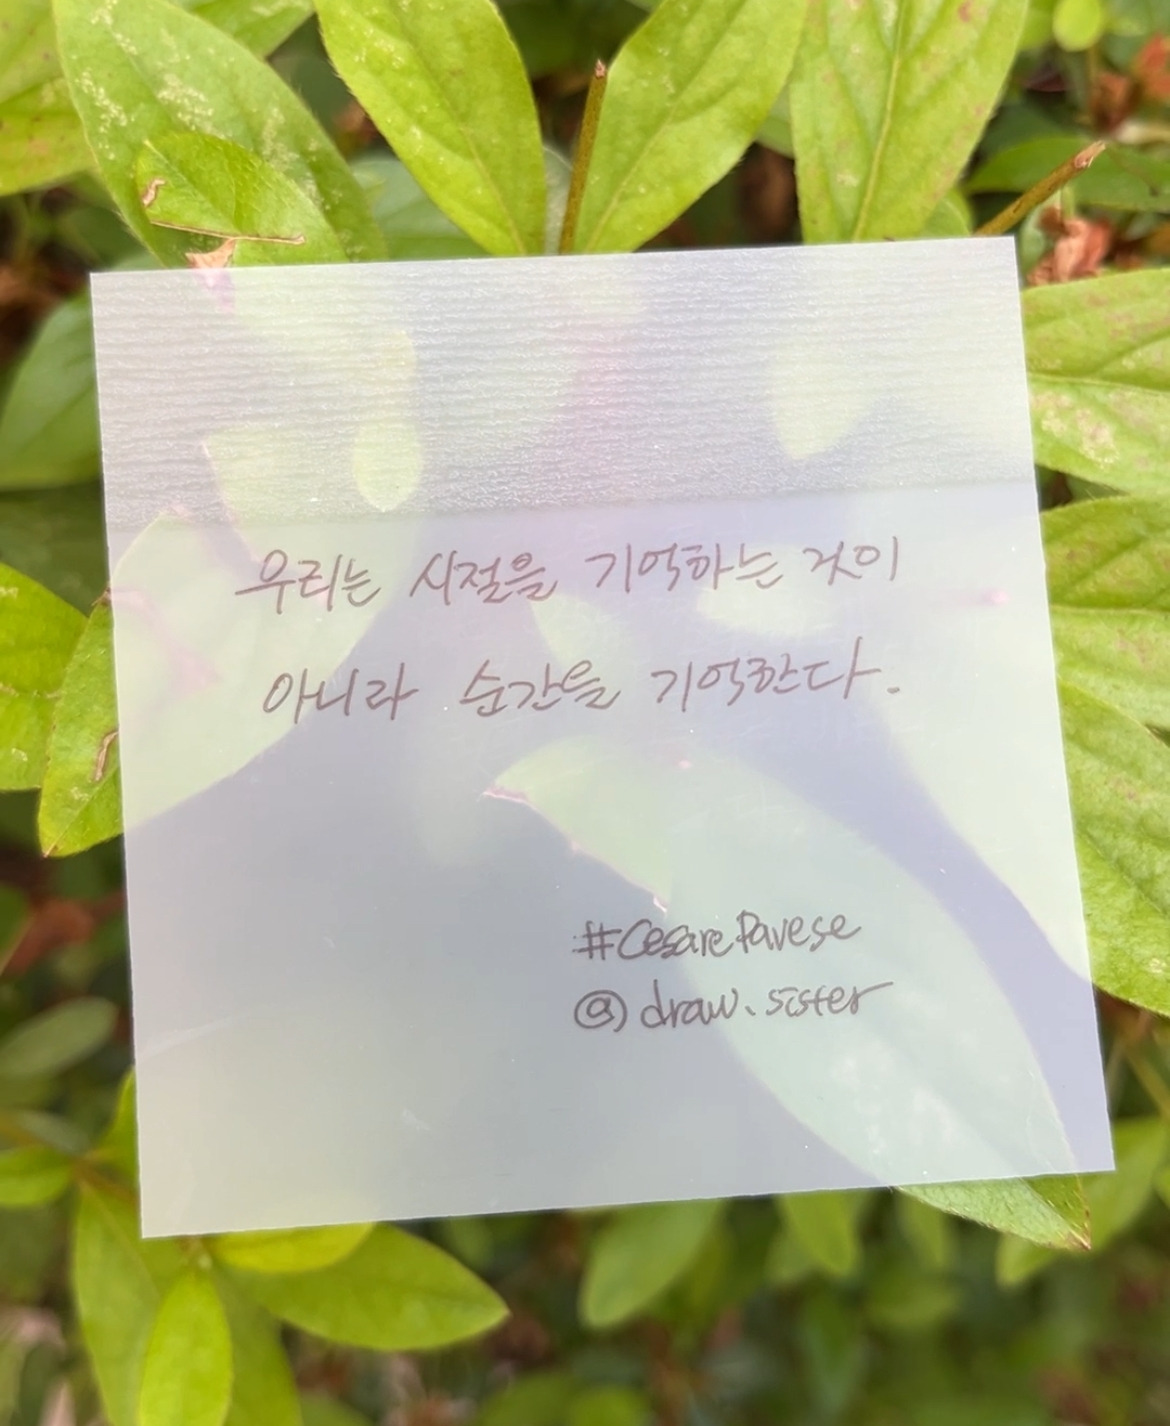 우리는 시절을 기억하는 것이
아니라 순간을 기억한다.
#Cesare Pavese
@draw.sister